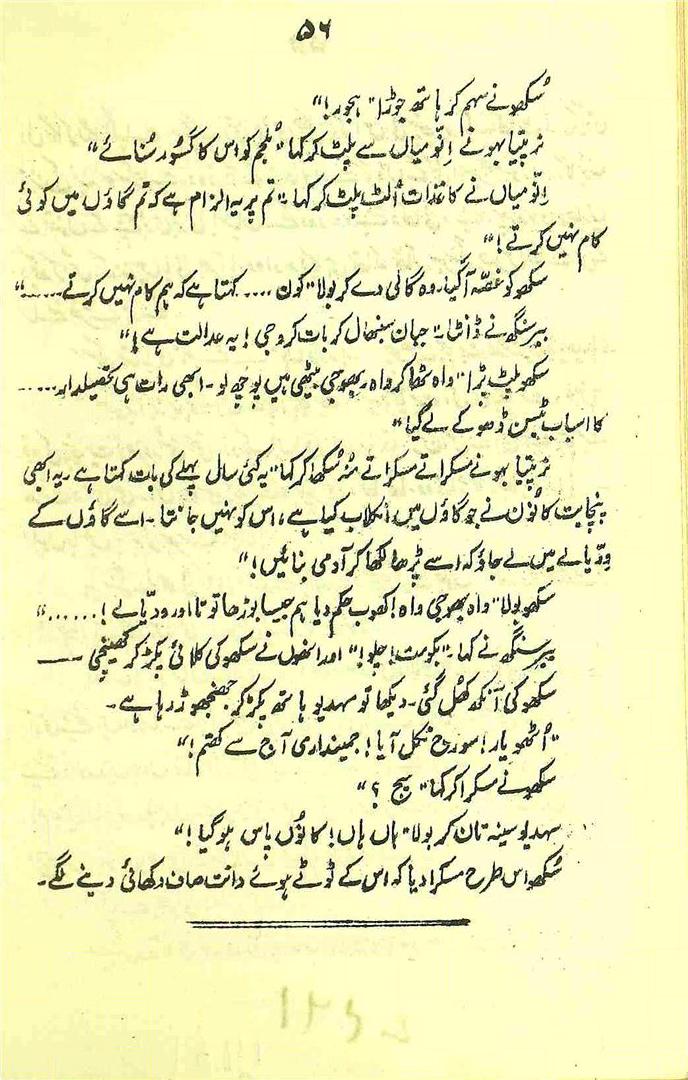 ۵۶
سُکھو نے سہم کر ہاتھ جوڑا "ہجور!"
نرپتیا بہو نے اِنّو میاں سے پلٹ کر کہا "مُلجم کو اس کا گسُور سُنائے"
اِنّو میاں نے کاغذات اُلٹ پلٹ کر کہا۔ "تم پر یہ الزام ہے کہ تم گاؤں میں کوئی
کام نہیں کرتے!"
سکھو کو غصّہ آ گیا۔ وہ گالی دے کر بولا "کون .... کہتا ہے کہ ہم کام نہیں کرتے ......"
بیر سنگھ نے ڈانٹا۔ "جبان سنبھال کر بات کرو جی! یہ عدالت ہے!"
سکھو پلٹ پڑا "واہ ٹھاکر واہ۔ بھوجی بیٹھی ہیں پوچھ لو۔ ابھی رات ہی تحصیلدار .....
کا اسباب ٹیسن ڈھو کے لے گیا"
نرپتیا بہو نے مسکراتے مسکراتے منُہ سُکھا کر کہا "یہ کئی سال پہلے کی بات کہتا ہے۔ یہ ابھی
پنچایت کانُون نے جو گاؤں میں انکلاب کیا ہے، اس کو نہیں جانتا۔ اسے گاؤں کے
وِدّیالے میں لے جاؤ کہ اسے پڑھا لکھا کر آدمی بنائیں!"
سکھو بولا "واہ بھوجی واہ! کھوب حکم دیا ہم جیسا بوڑھا توتا اور ودیّالے! ......"
بیر سنگھ نے کہا۔ "بکو مت! چلو!" اور انھوں نے سکھو کی کلائی پکڑ کر کھینچی ——
سکھو کی آنکھ کھُل گئی۔ دیکھا تو سہدیو ہاتھ پکڑ کر جھنجھوڑ رہا ہے۔
"اُٹھو یار! سورج نکل آیا! جمینداری آج سے کھتم!"
سکھو نے مسکرا کر کہا "سچ ؟"
سہدیو سینہ تان کر بولا "ہاں ہاں! کانُوں پاس ہو گیا!"
سُکھو اس طرح مسکرا دیا کہ اس کے ٹوٹے ہوئے دانت صاف دکھائی دینے لگے۔